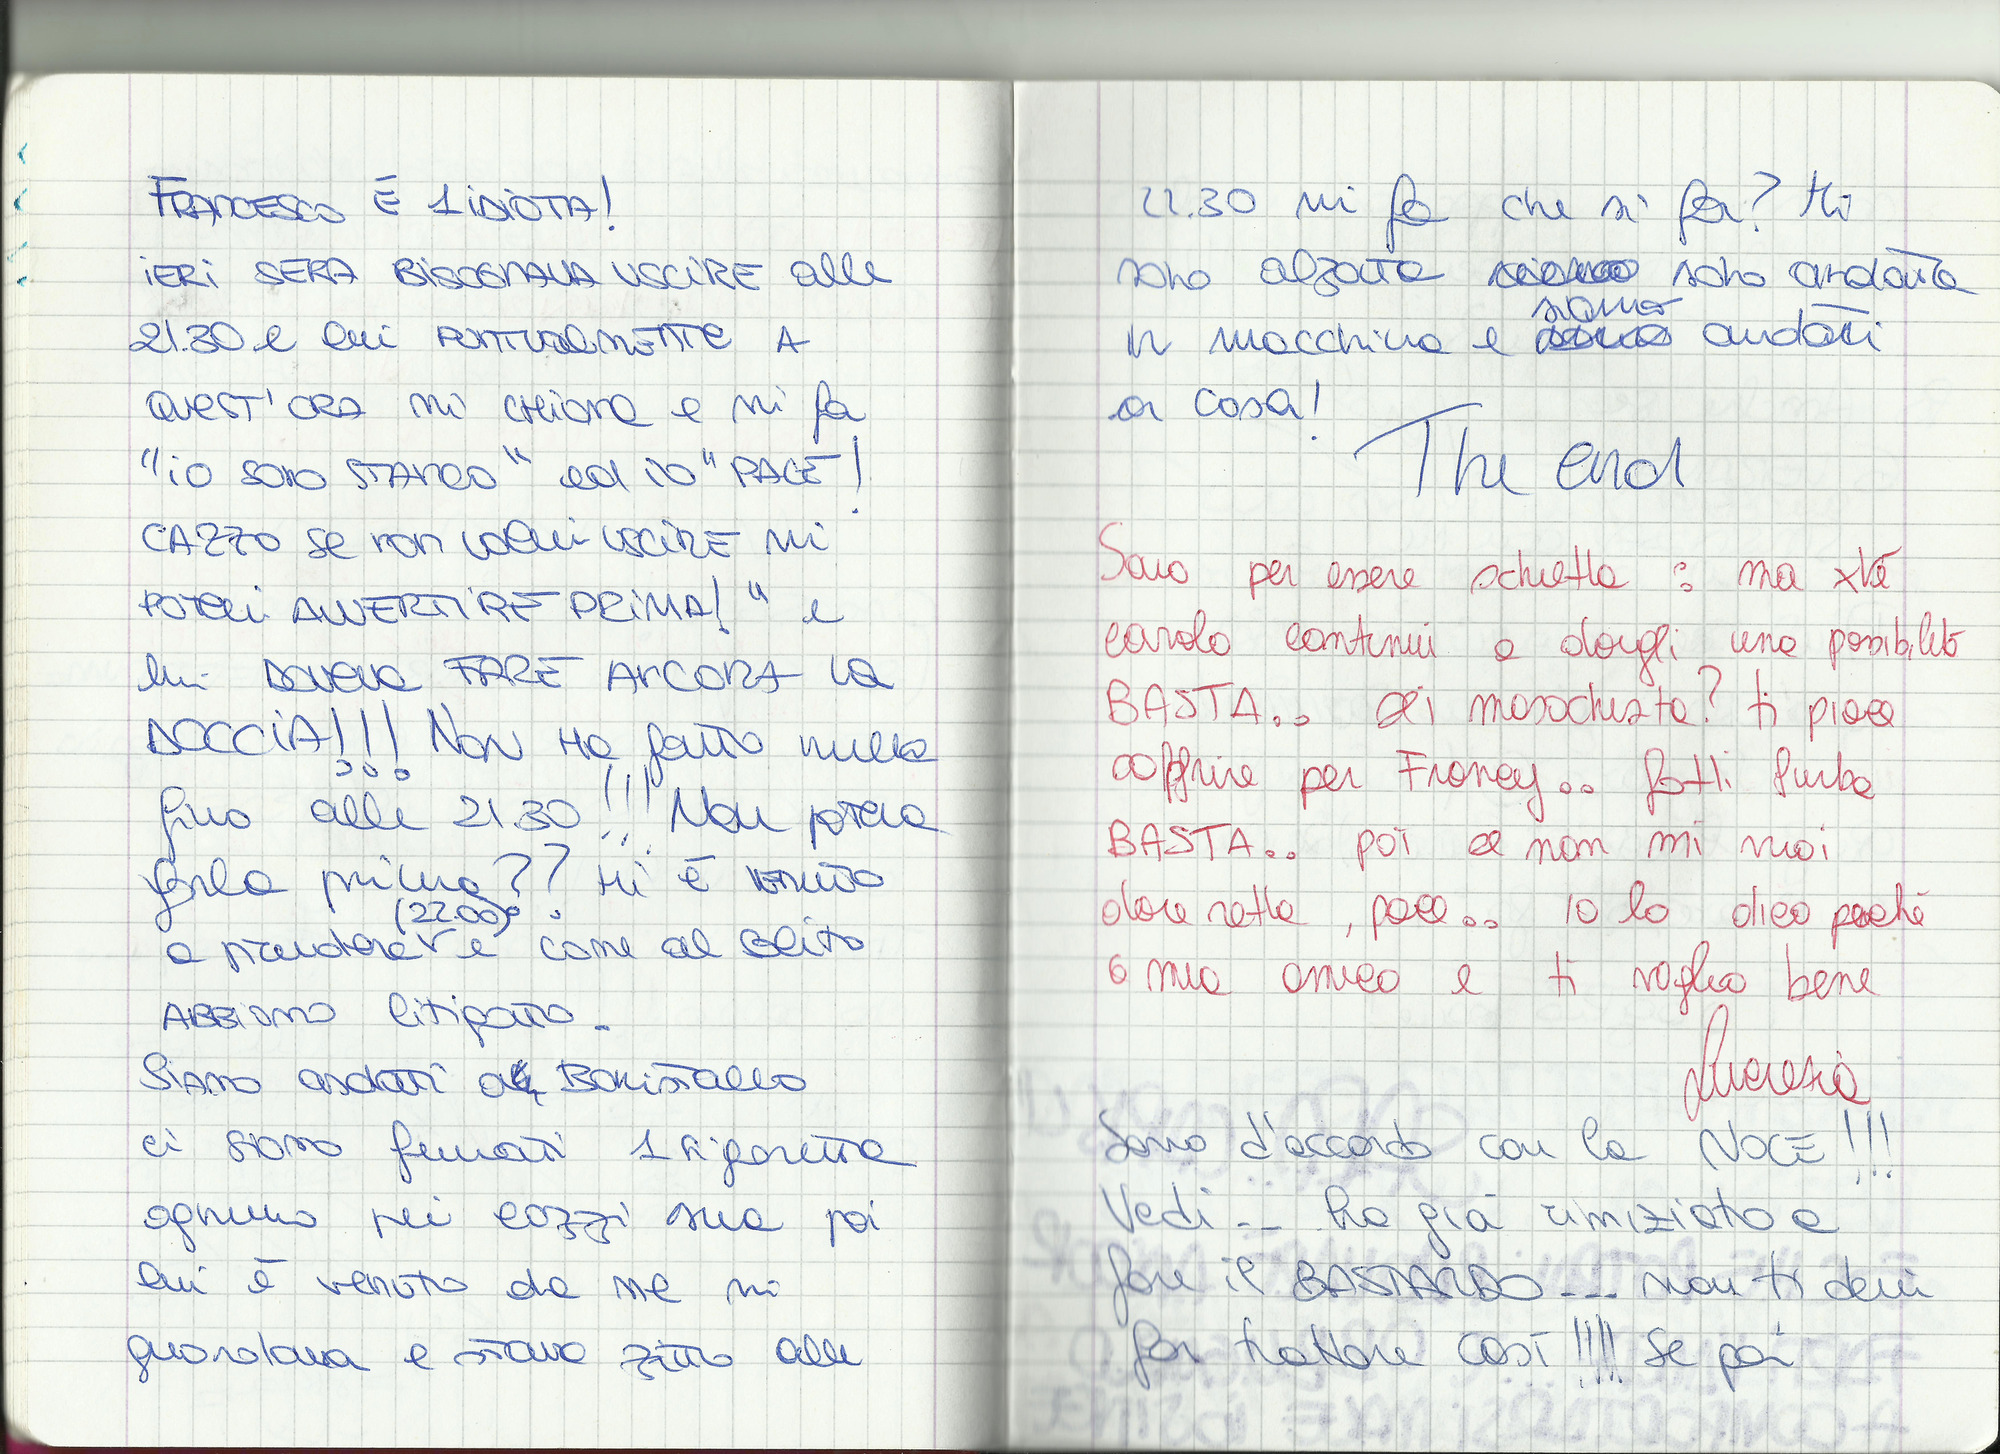 FRANCESCO È 1 IDIOTA!
IERI SERA BISOGNAVA USCIRE alle
21.30 e lui PUNTUALMENTE A
QUEST'ORA mi CHIAMA e mi fa
"io sono STANCO" ed io "PACE!
CAZZO se non volevi USCIRE mi
potevi AVVERTIRE PRIMA!" e
lui DOVEVA FARE ANCORA LA
DOCCIA!!! Non HA fatto nulla
fino alle 21.30!!! Non poteva
farla prima?? Mi è venuto
a prendere (22.00) e come al solito
ABBIAMO litigato.
Siamo andati a BONISTALLO
ci siamo fumati 1 sigaretta
ognuno nei cazzi sua poi
lui è venuto da me mi
guardava e stava zitto alle
22.30 mi fa che si fa? Mi
sono alzata sono andata
in macchina e siamo andati
a casa!
The end
Sarò per essere schietta : ma xké
cavolo continui a dargli una possibilità
BASTA.. sei masochista? ti piace
soffrire per Francy.. fatti furba
BASTA.. poi se non mi vuoi
dare retta, pace.. io lo dico perché
6 mia amica e ti voglio bene
Lucrezia
Sono d'accordo con la NOCE!!!
Vedi -- ha già rinniziato a
fare il BASTARDO --- non ti devi
far trattare così!!!! Se poi